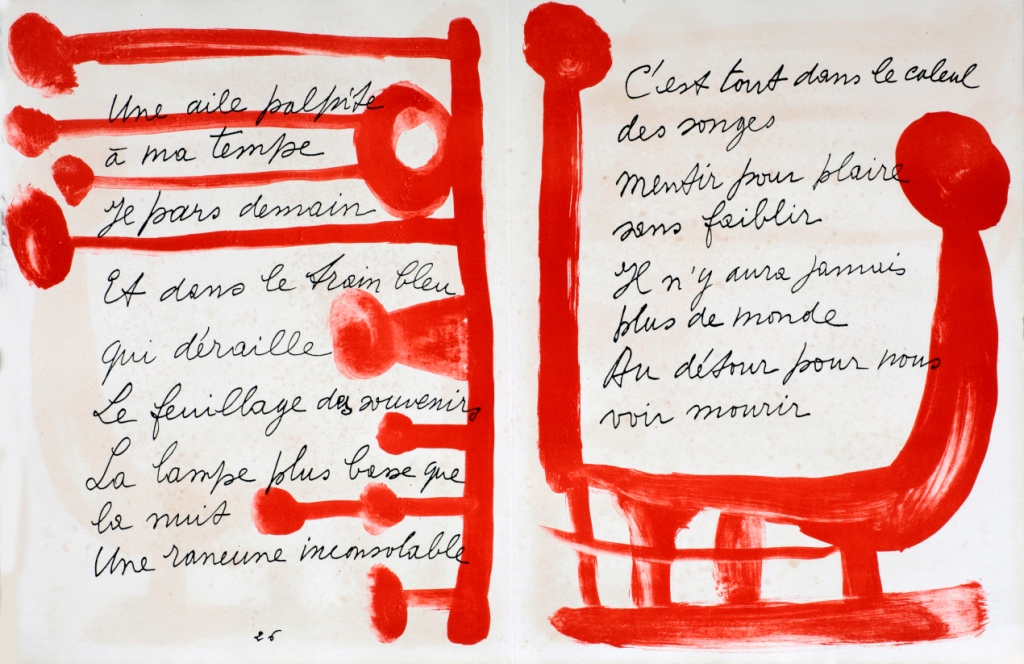 Une aile palpite
à ma tempe
Je pars demain
Et dans le train bleu
qui déraille
Le feuillage des souvenirs
La lampe plus basse que
la nuit
Une rancune inconsolable
26
C'est tout dans le calcul
des songes
Mentir pour plaire
sans faiblir
Il n'y aura jamais
plus de monde
Au détour pour nous
voir mourir